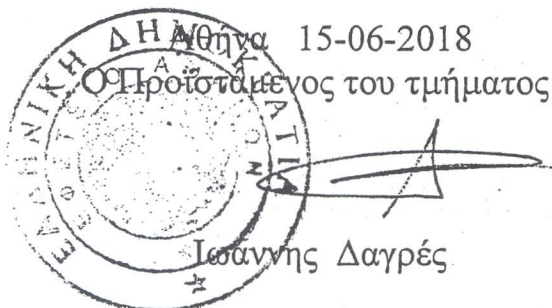 Αθήνα 15-06-2018
Ο Προϊστάμενος του τμήματος
Ιωάννης Δαγρές
ΕΛΛΗΝΙΚΗ ΔΗΜ